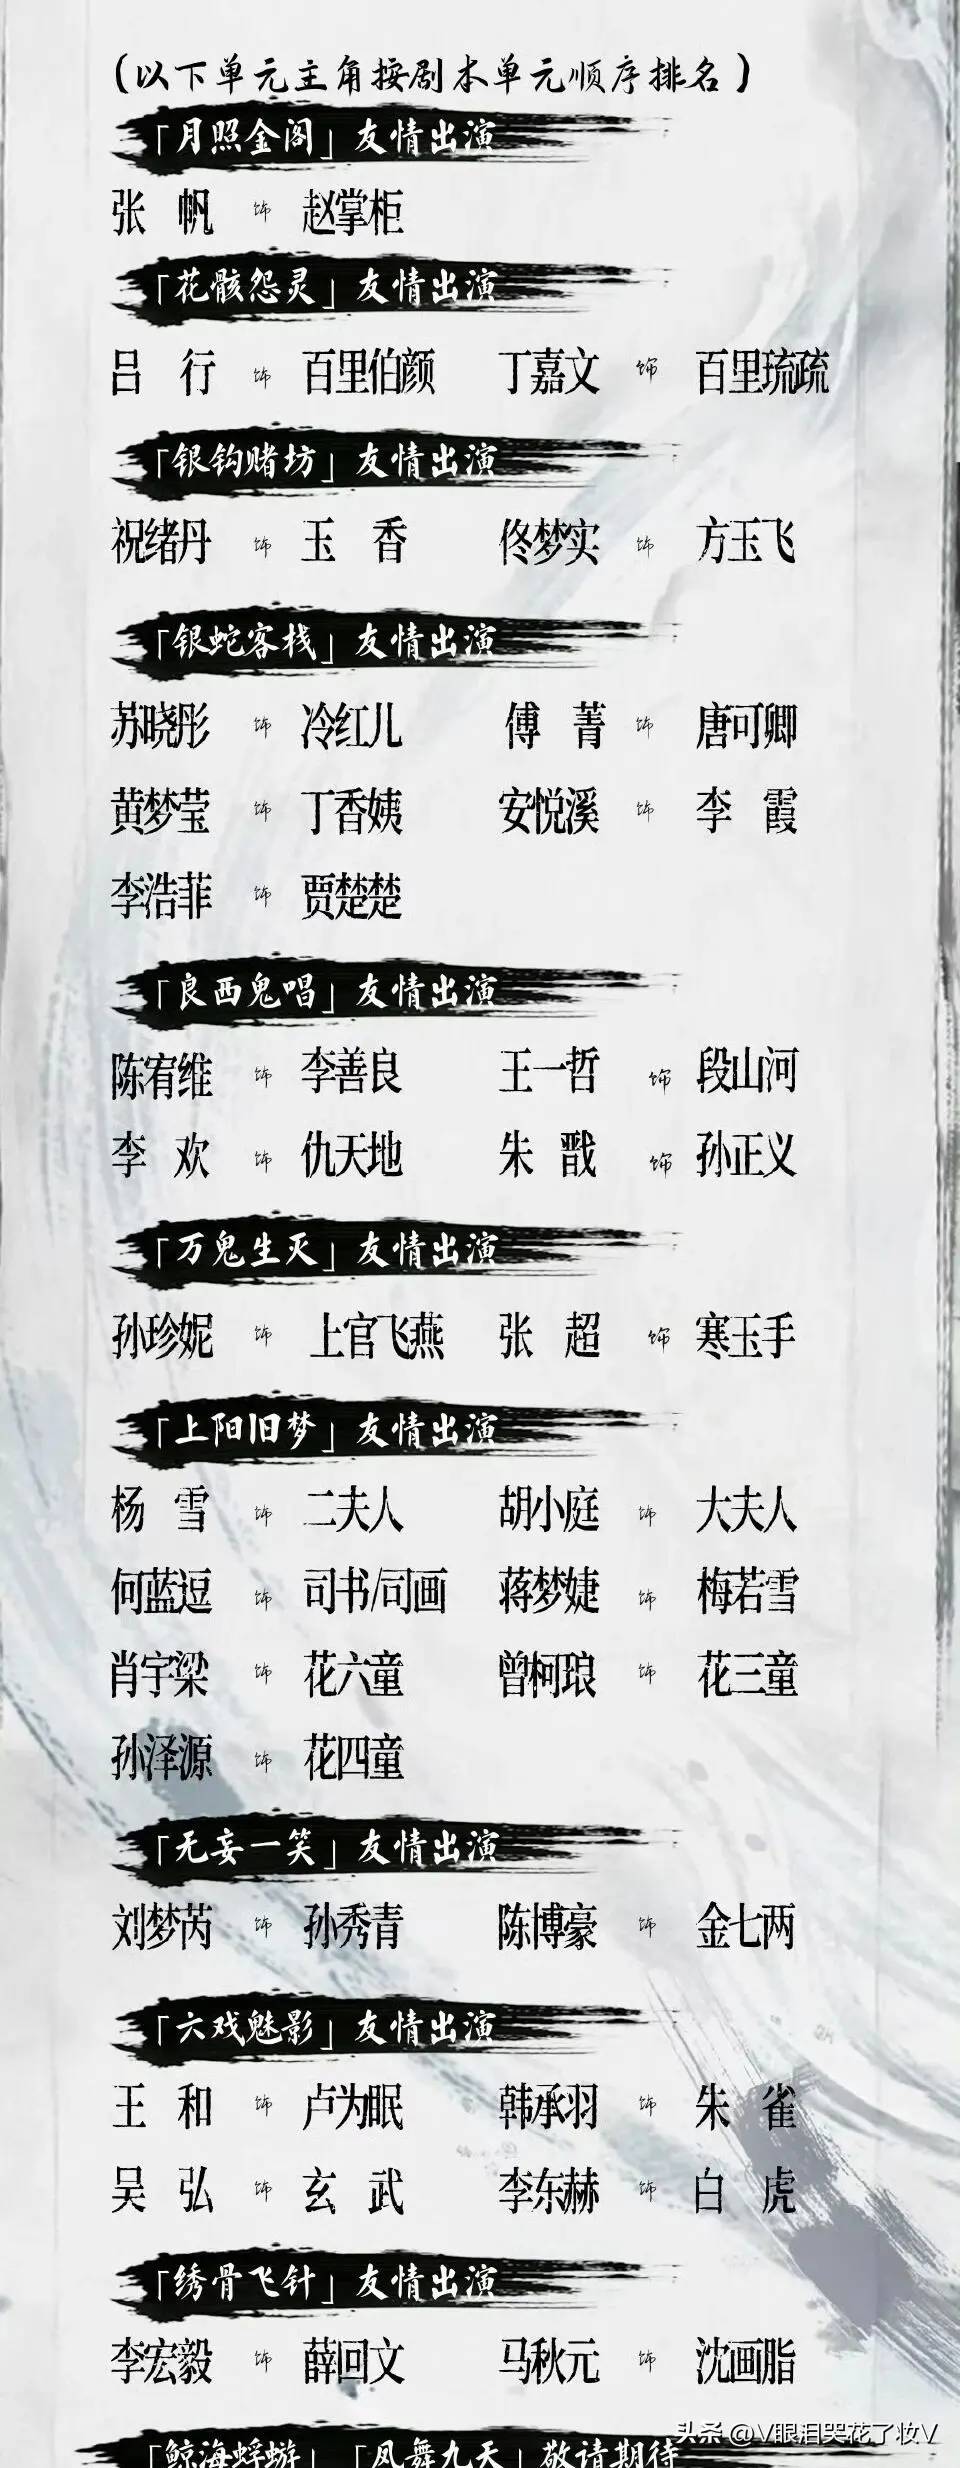 (以下单元主角按剧本单元顺序排名)
「月照金阁」友情出演
张 帆 饰 赵掌柜
「花骸怨灵」友情出演
吕 行 饰 百里伯颜 丁嘉文 饰 百里琉疏
「银钩赌坊」友情出演
祝绪丹 饰 玉 香 佟梦实 饰 方玉飞
「银蛇客栈」友情出演
苏晓彤 饰 冷红儿 傅 菁 饰 唐可卿
黄梦莹 饰 丁香姨 安悦溪 饰 李 霞
李浩菲 饰 贾楚楚
「良西鬼唱」友情出演
陈宥维 饰 李善良 王一哲 饰 段山河
李 欢 饰 仇天地 朱 戬 饰 孙正义
「万鬼生灭」友情出演
孙珍妮 饰 上官飞燕 张 超 饰 寒玉手
「上阳旧梦」友情出演
杨 雪 饰 二夫人 胡小庭 饰 大夫人
何蓝逗 饰 司书/司画 蒋梦婕 饰 梅若雪
肖宇梁 饰 花六童 曾柯琅 饰 花三童
孙泽源 饰 花四童
「无妄一笑」友情出演
刘梦芮 饰 孙秀青 陈博豪 饰 金七两
「六戏魅影」友情出演
王 和 饰 卢为眠 韩承羽 饰 朱 雀
吴 弘 饰 玄 武 李东赫 饰 白 虎
「绣骨飞针」友情出演
李宏毅 饰 薛回文 马秋元 饰 沈画脂
「鲸海蜉蝣」「凤舞九天」敬请期待
头条 @V眼泪哭花了妆V